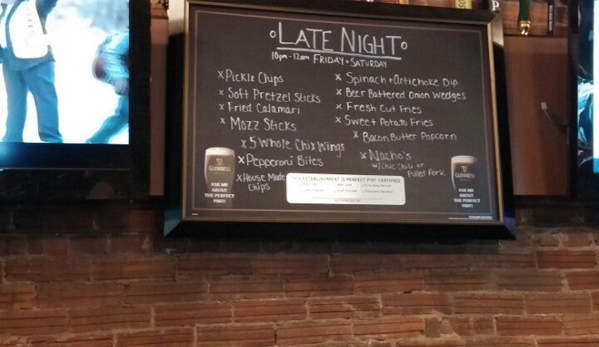 LATE NIGHT
10pm-12am FRIDAY + SATURDAY
x Pickle Chips
x Soft Pretzel Sticks
x Fried Calamari
x Mozz Sticks
x 5 Whole Chix Wings
x Pepperoni Bites
x House Made
Chips
x Spinach + Artichoke Dip
x Beer Battered Onion Wedges
x Fresh Cut Fries
x Sweet Potato Fries
x Bacon Butter Popcorn
x Nacho's
w/ Chix Chili or
Pulled Pork
GUINNESS
ASK ME
ABOUT
THE PERFECT
PINT!
THIS ESTABLISHMENT IS PERFECT PINT CERTIFIED
GUINNESS
ASK ME
ABOUT
THE PERFECT
PINT!